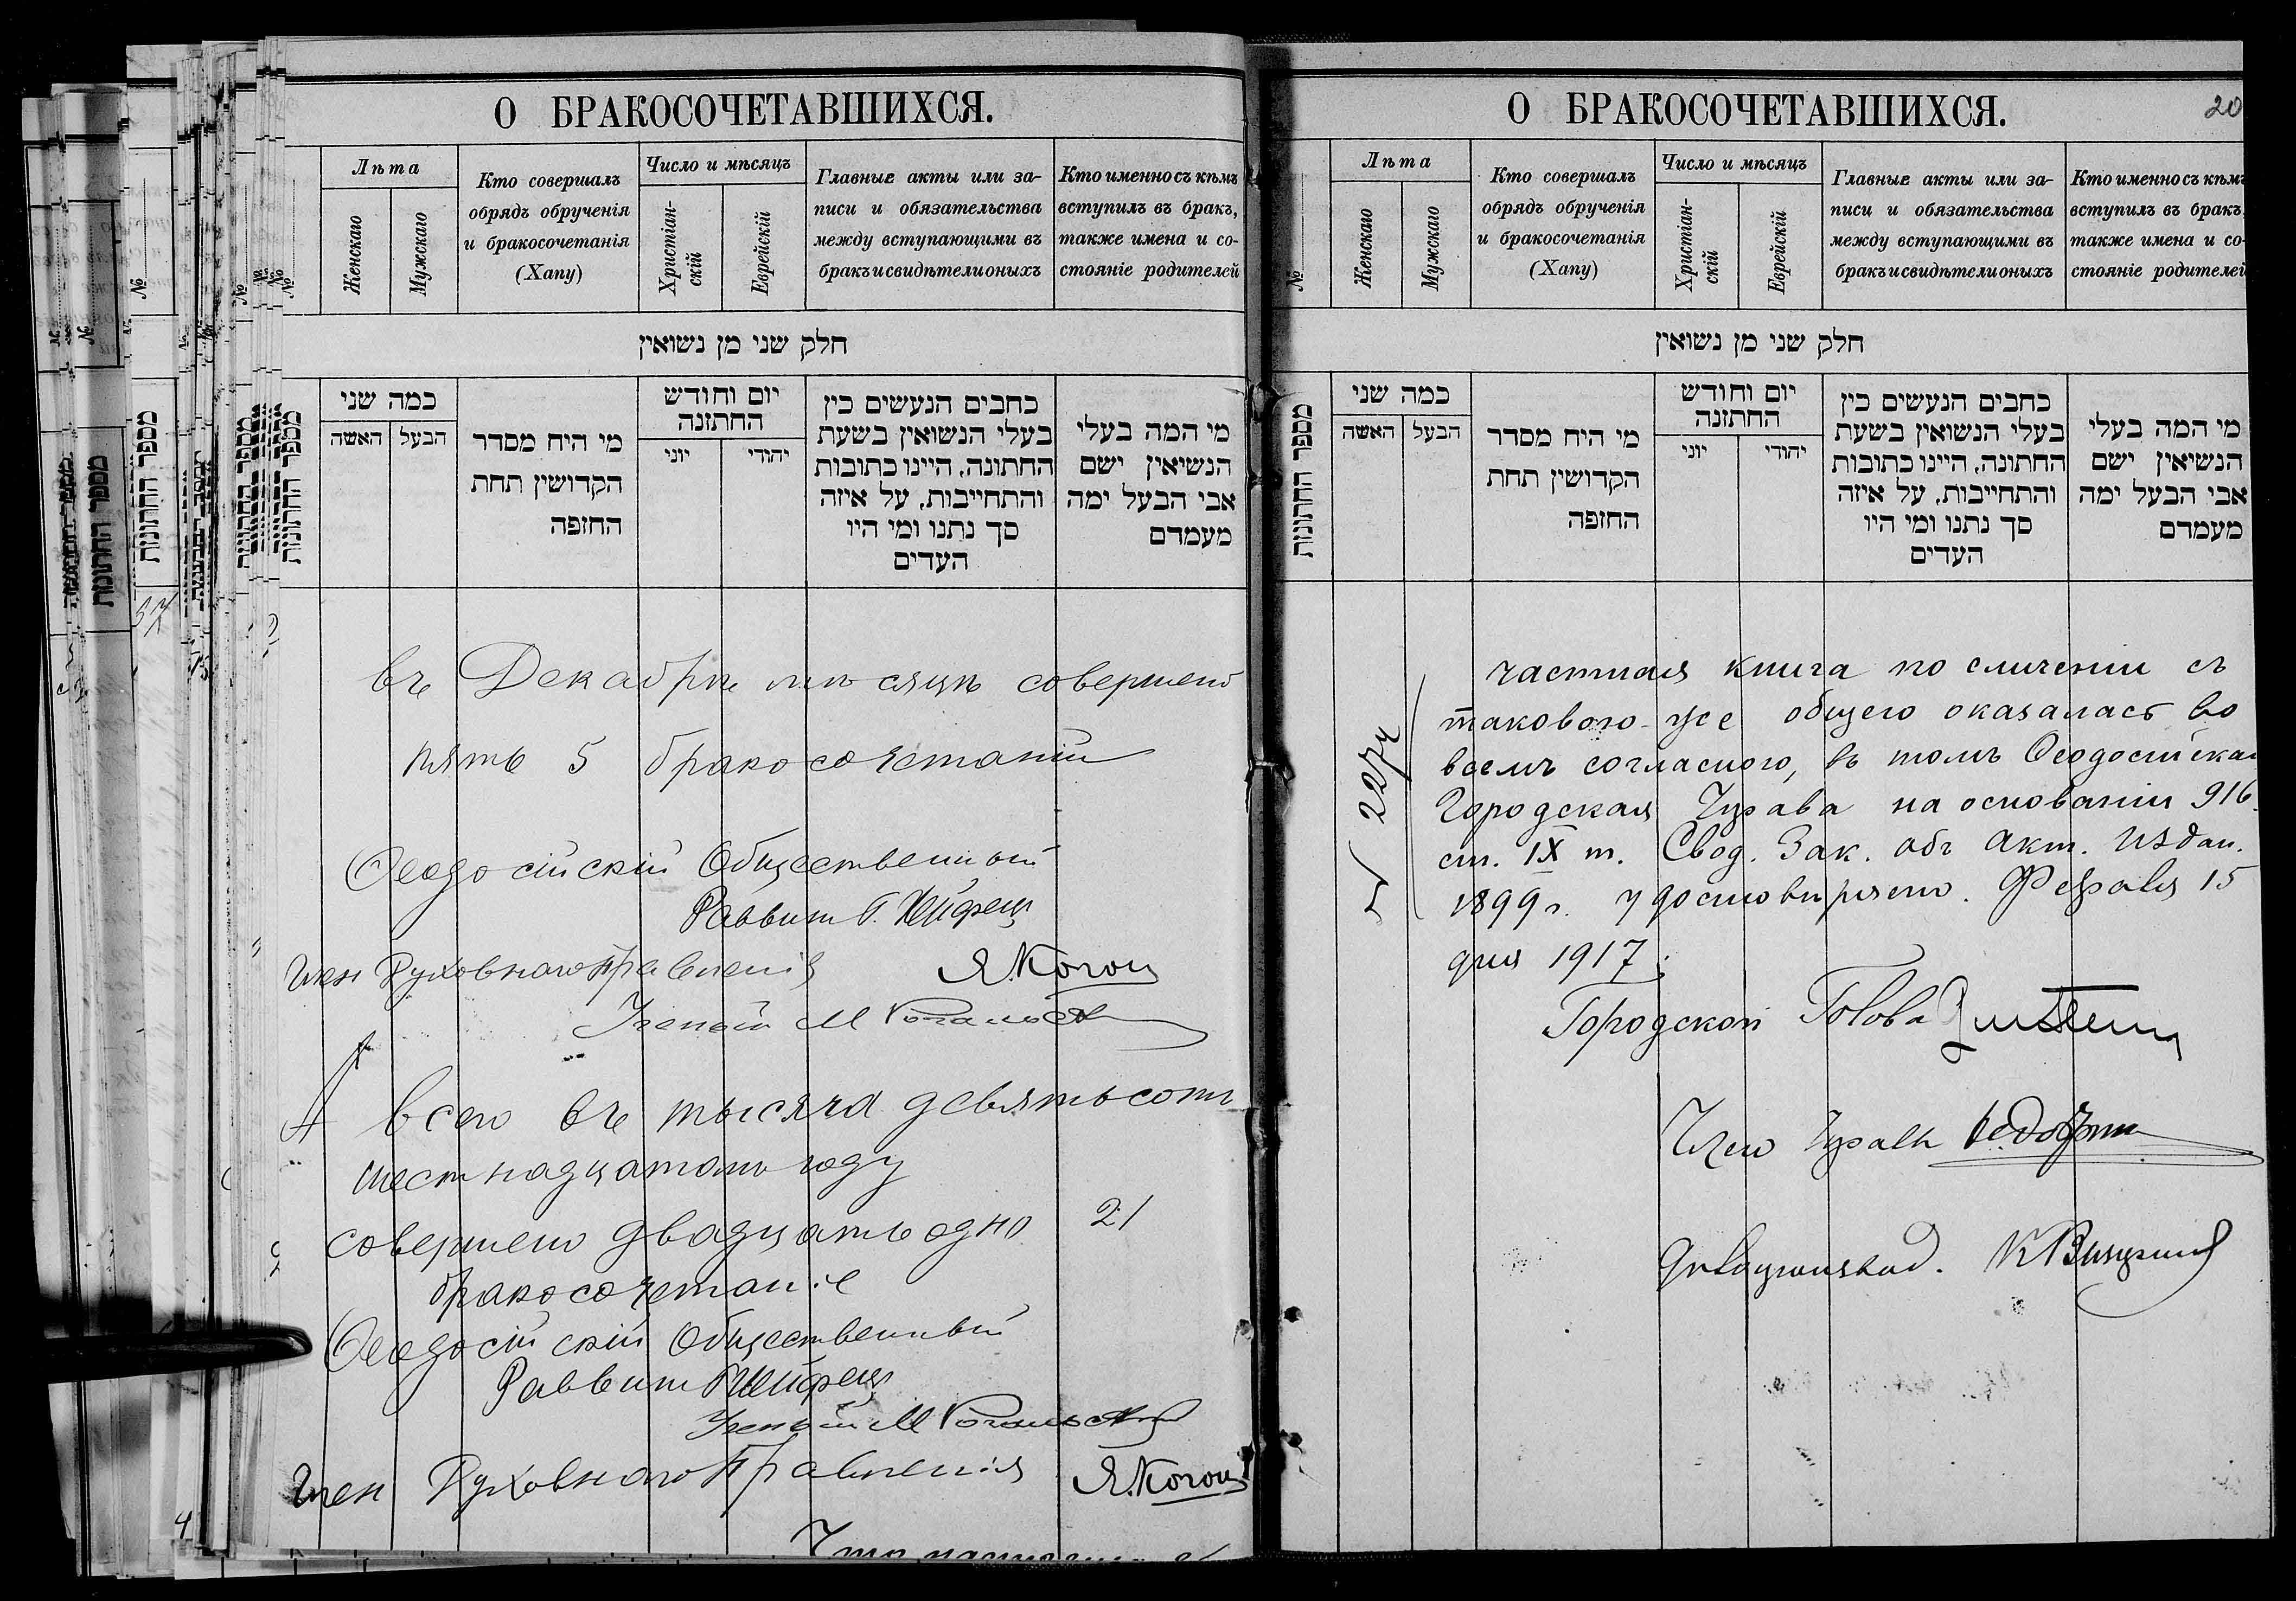 О БРАКОСОЧЕТАВШИХСЯ.
№
Лѣта
Женскаго
Мужскаго
Кто совершалъ
обрядъ обрученія
и бракосочетанія
(Хапу)
Число и мѣсяцъ
Христіан-
скій
Еврейскій
Главные акты или за-
писи и обязательства
между вступающими въ
бракъ и свидѣтели оныхъ
Кто именно съ кѣмъ
вступилъ въ бракъ,
также имена и со-
стояніе родителей
חלק שני מן נשואין
מספר החתונות
כמה שני
האשה
הבעל
מי היח מסדר
הקדושין תחת
החזפה
יום וחודש
החתזנה
יוני
יהודי
כחבים הנעשים כין
בעלי הנשואין בשעת
החתונה, היינו כתובות
והתחייבות, על איזה
סך נתנו ומי היו
העדים
מי המה בעלי
הנשיאין ישם
אבי הבעל ימה
מעמדם
въ Декабрѣ мѣсяцѣ совершено
пять 5 бракосочетаній
Ѳеодосійскій Общественный
Раввинъ Г. Хейфецъ
Член Духовнаго Правленія Я. Коган
Ученый М
Всего въ тысяча девятьсотъ
шестнадцатомъ году
совершено двадцать одно 21
бракосочетаніе
Ѳеодосійскій Общественный
Раввинъ Г Хейфецъ
Ученый М
Член Духовнаго Правленія Я. Коган
Что настоящая
О БРАКОСОЧЕТАВШИХСЯ.
20
№
Лѣта
Женскаго
Мужскаго
Кто совершалъ
обрядъ обрученія
и бракосочетанія
(Хапу)
Число и мѣсяцъ
Христіан-
скій
Еврейскій
Главные акты или за-
писи и обязательства
между вступающими въ
бракъ и свидѣтели оныхъ
Кто именно съ кѣмъ
вступилъ въ бракъ,
также имена и со-
стояніе родителей
חלק שני מן נשואין
מספר החתונות
כמה שני
האשה
הבעל
מי היח מסדר
הקדושין תחת
החזפה
יום וחודש
החתזנה
יוני
יהודי
כחבים הנעשים כין
בעלי הנשואין בשעת
החתונה, היינו כתובות
והתחייבות, על איזה
סך נתנו ומי היו
העדים
מי המה בעלי
הנשיאין ישם
אבי הבעל ימה
מעמדם
частная книга по сличеніи съ
таковою-же общею оказалась во
всемъ согласною, въ томъ Ѳеодосійская
Городская Управа на основаніи 916
ст. IX т. Свод. Зак. объ акт. издан.
1899 г. удостовѣряетъ. Февраля 15
дня 1917 г.
Городской Голова
Членъ Управы
Дѣлопроизвод.